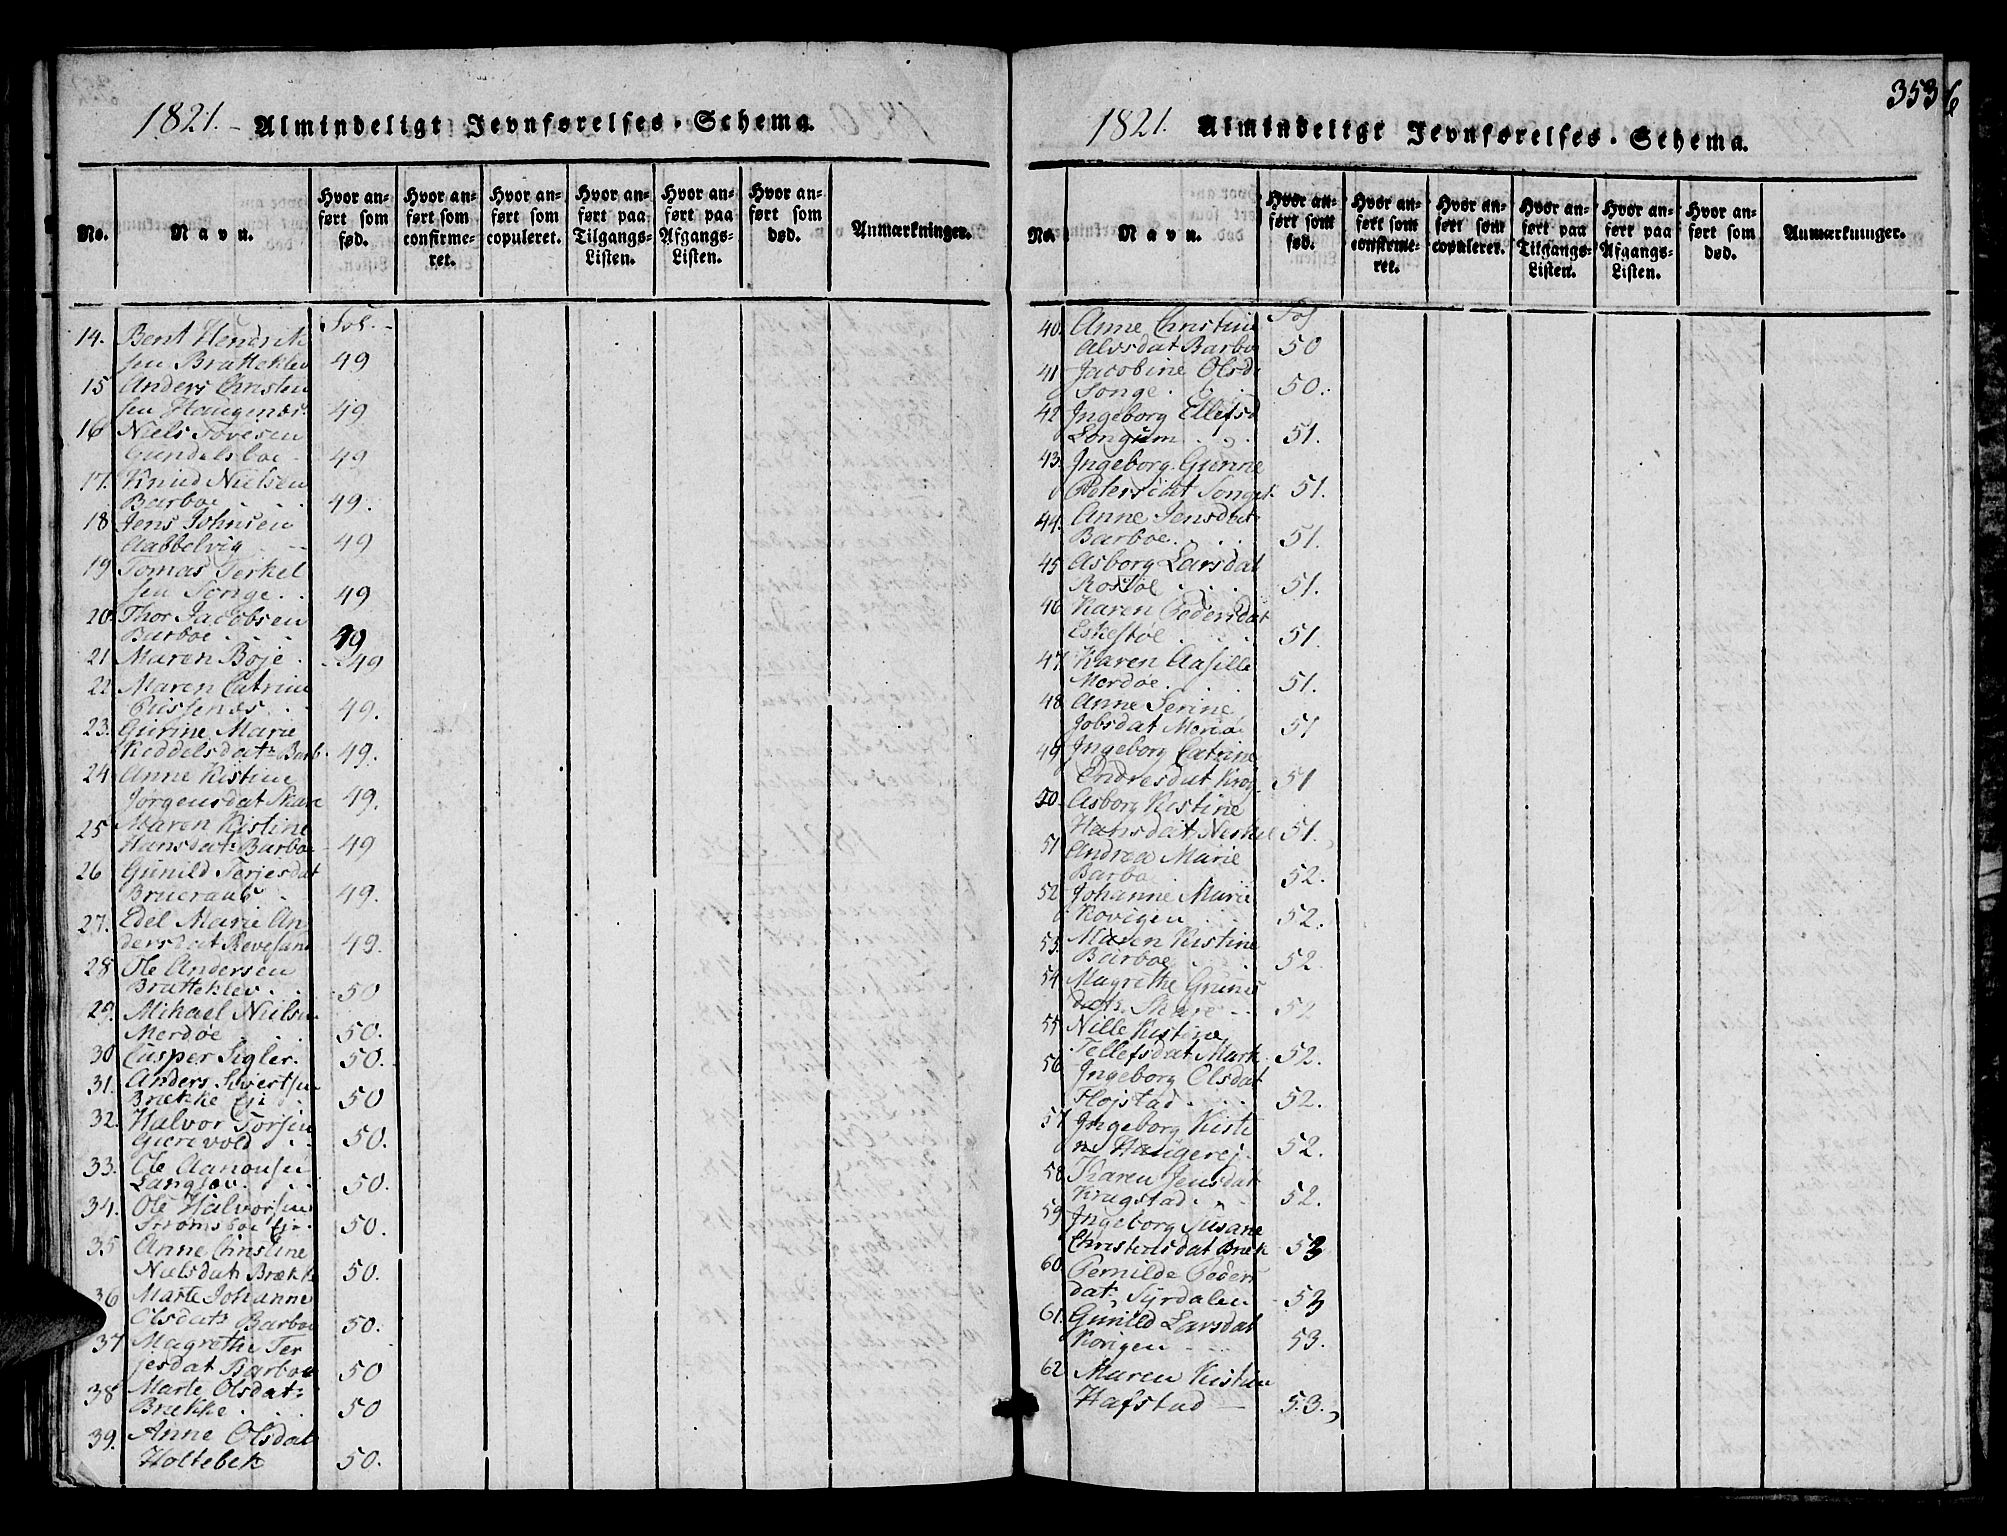 1821. – Almindeligt Jevnførelses-Schema.
No.
Navn.
Hvor an-
ført som
fød.
Hvor an-
ført som
confirme-
ret.
Hvor an-
ført som
copuleret.
Hvor an-
ført paa
Tilgangs-
Listen.
Hvor an-
ført paa
Afgangs-
Listen.
Hvor an-
ført som
død.
Anmærkninger.
Fol.
14. Bent Hendrik
sen Bratteklev 49
15 Anders Christen
sen Haugenes 49
16 Niels Tovesen
Gundelsboe 49
17. Knud Nielsen
Barboe 49.
18 Jens Johnsen
Aabbelvig 49
19 Tomas Terkel
sen Songe 49
20. Thor Jacobsen
Barboe 49
21 Maren Boje 49
22 Maren Catrine
49.
23. Gurine Marie
Keddelsdatr Barb 49.
24 Anne Kistine
Jørgensdat Skare 49.
25 Maren Kistine
Hansdat: Barboe 49
26 Gunild Terjesdat
49.
27. Edel Marie An
dersdat Revesand 49.
28 Ole Andersen
Bratteklev 50
29. Mikael Nielsen
Merdøe 50.
30 Casper Sigler 50.
31. Anders Sivertsen
Brække Eje 50
32. Halvor Torsen
Gierevold 50.
33. Ole Aanonsen
Langsev 50.
34. Ole Halvorsen
Strømsboe Eje 50.
35 Anne Christine
Nielsdat Brække 50.
36 Marte Johanne
Olsdatr Barboe 50.
37 Magrethe Ter
jesdat Barboe 50
38 Marte Olsdat:
Brække 50
39. Anne Olsdat
Holtebek 50.
353
6
1821. Almindeligt Jevnførelses-Schema.
No.
Navn.
Hvor an-
ført som
fød.
Hvor an-
ført som
confirme-
ret.
Hvor an-
ført som
copuleret.
Hvor an-
ført paa
Tilgangs-
Listen.
Hvor an-
ført paa
Afgangs-
Listen.
Hvor an-
ført som
død.
Anmærkninger.
Fol
40. Anne Christine
Alvsdat Barboe 50
41 Jacobine Olsd
Songe 50.
42 Ingeborg Ellefsd
Longum 51.
43. Ingeborg Gunne
Petersdat Songe 51.
44. Anne Jensdat
Barboe 51.
45 Asborg Larsdat
51.
46 Karen Pedersdat
51.
47 Karen Aasille
Merdøe 51.
48 Anne Serine
Jobsdat Merdø 51
49 Ingeborg Catrine
Endresdat Krog 51
50. Asborg Kistine
Hansdat Neskil 51.
51 Andrea Marie
Barbo 52.
52. Johanne Marie
Kovigen 52.
53. Maren Kistine
Barboe 52
54 Magrethe
datr. Skare 52
55 Nille Kistine
Tellefsdat Mark 52.
56 Ingeborg Olsdat
Flojstad 52.
57 Ingeborg Kisti
ne Haugerej 52.
58 Karen Jensdat
Krugstad 52.
59. Ingeborg Susane
Christensdat Bræk 53
60. Pernilde Peders
dat. Syrdalen 53
61. Gunild Larsdat
Kovigen 53.
62 Maren Kistine
Hafstad 53.